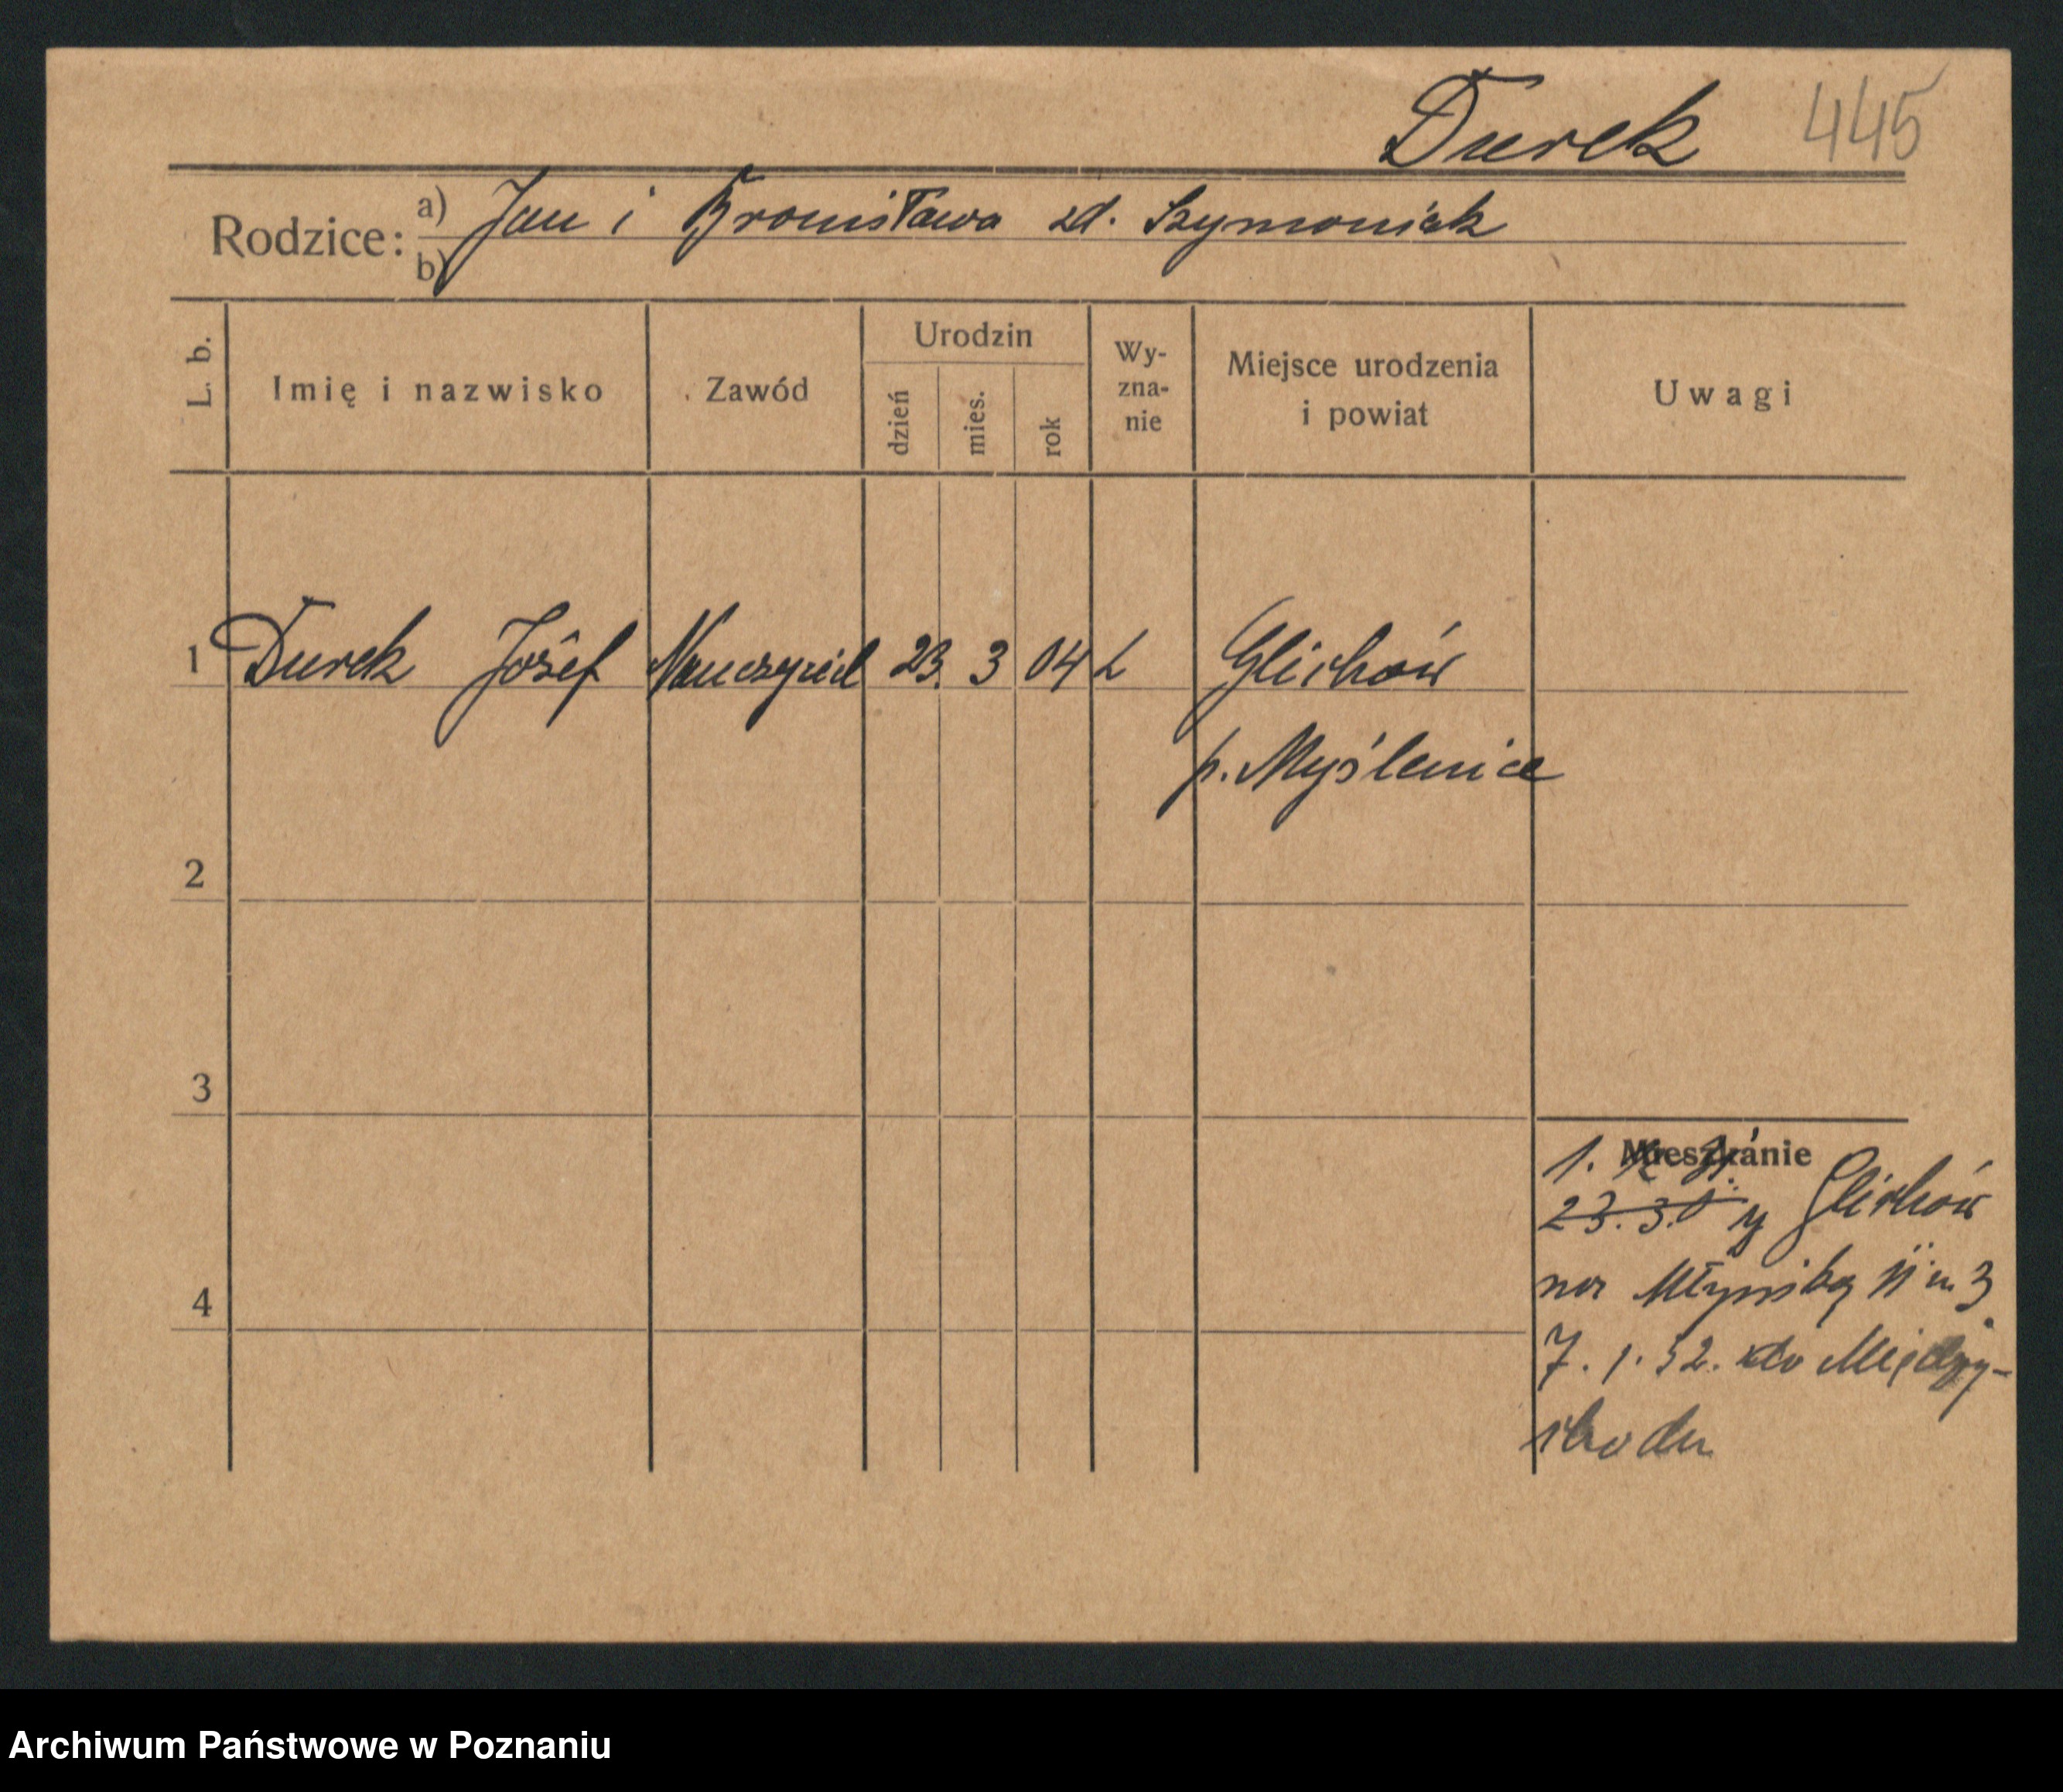 Durek 445
Rodzice: a) Jan i Bronisława zd. Szymoniak
b)
L. b. Imię i nazwisko Zawód Urodzin dzień mies. rok Wy-zna-nie Miejsce urodzenia i powiat Uwagi
1 Durek Józef Nauczyciel 23. 3 04 Glichów
p. Myślenice
2
3
Mieszkanie
1.
23. 3. z Glichów
na Młyńską 11 m 3
4
7. 1. 32. do Między-
chodu
Archiwum Państwowe w Poznaniu